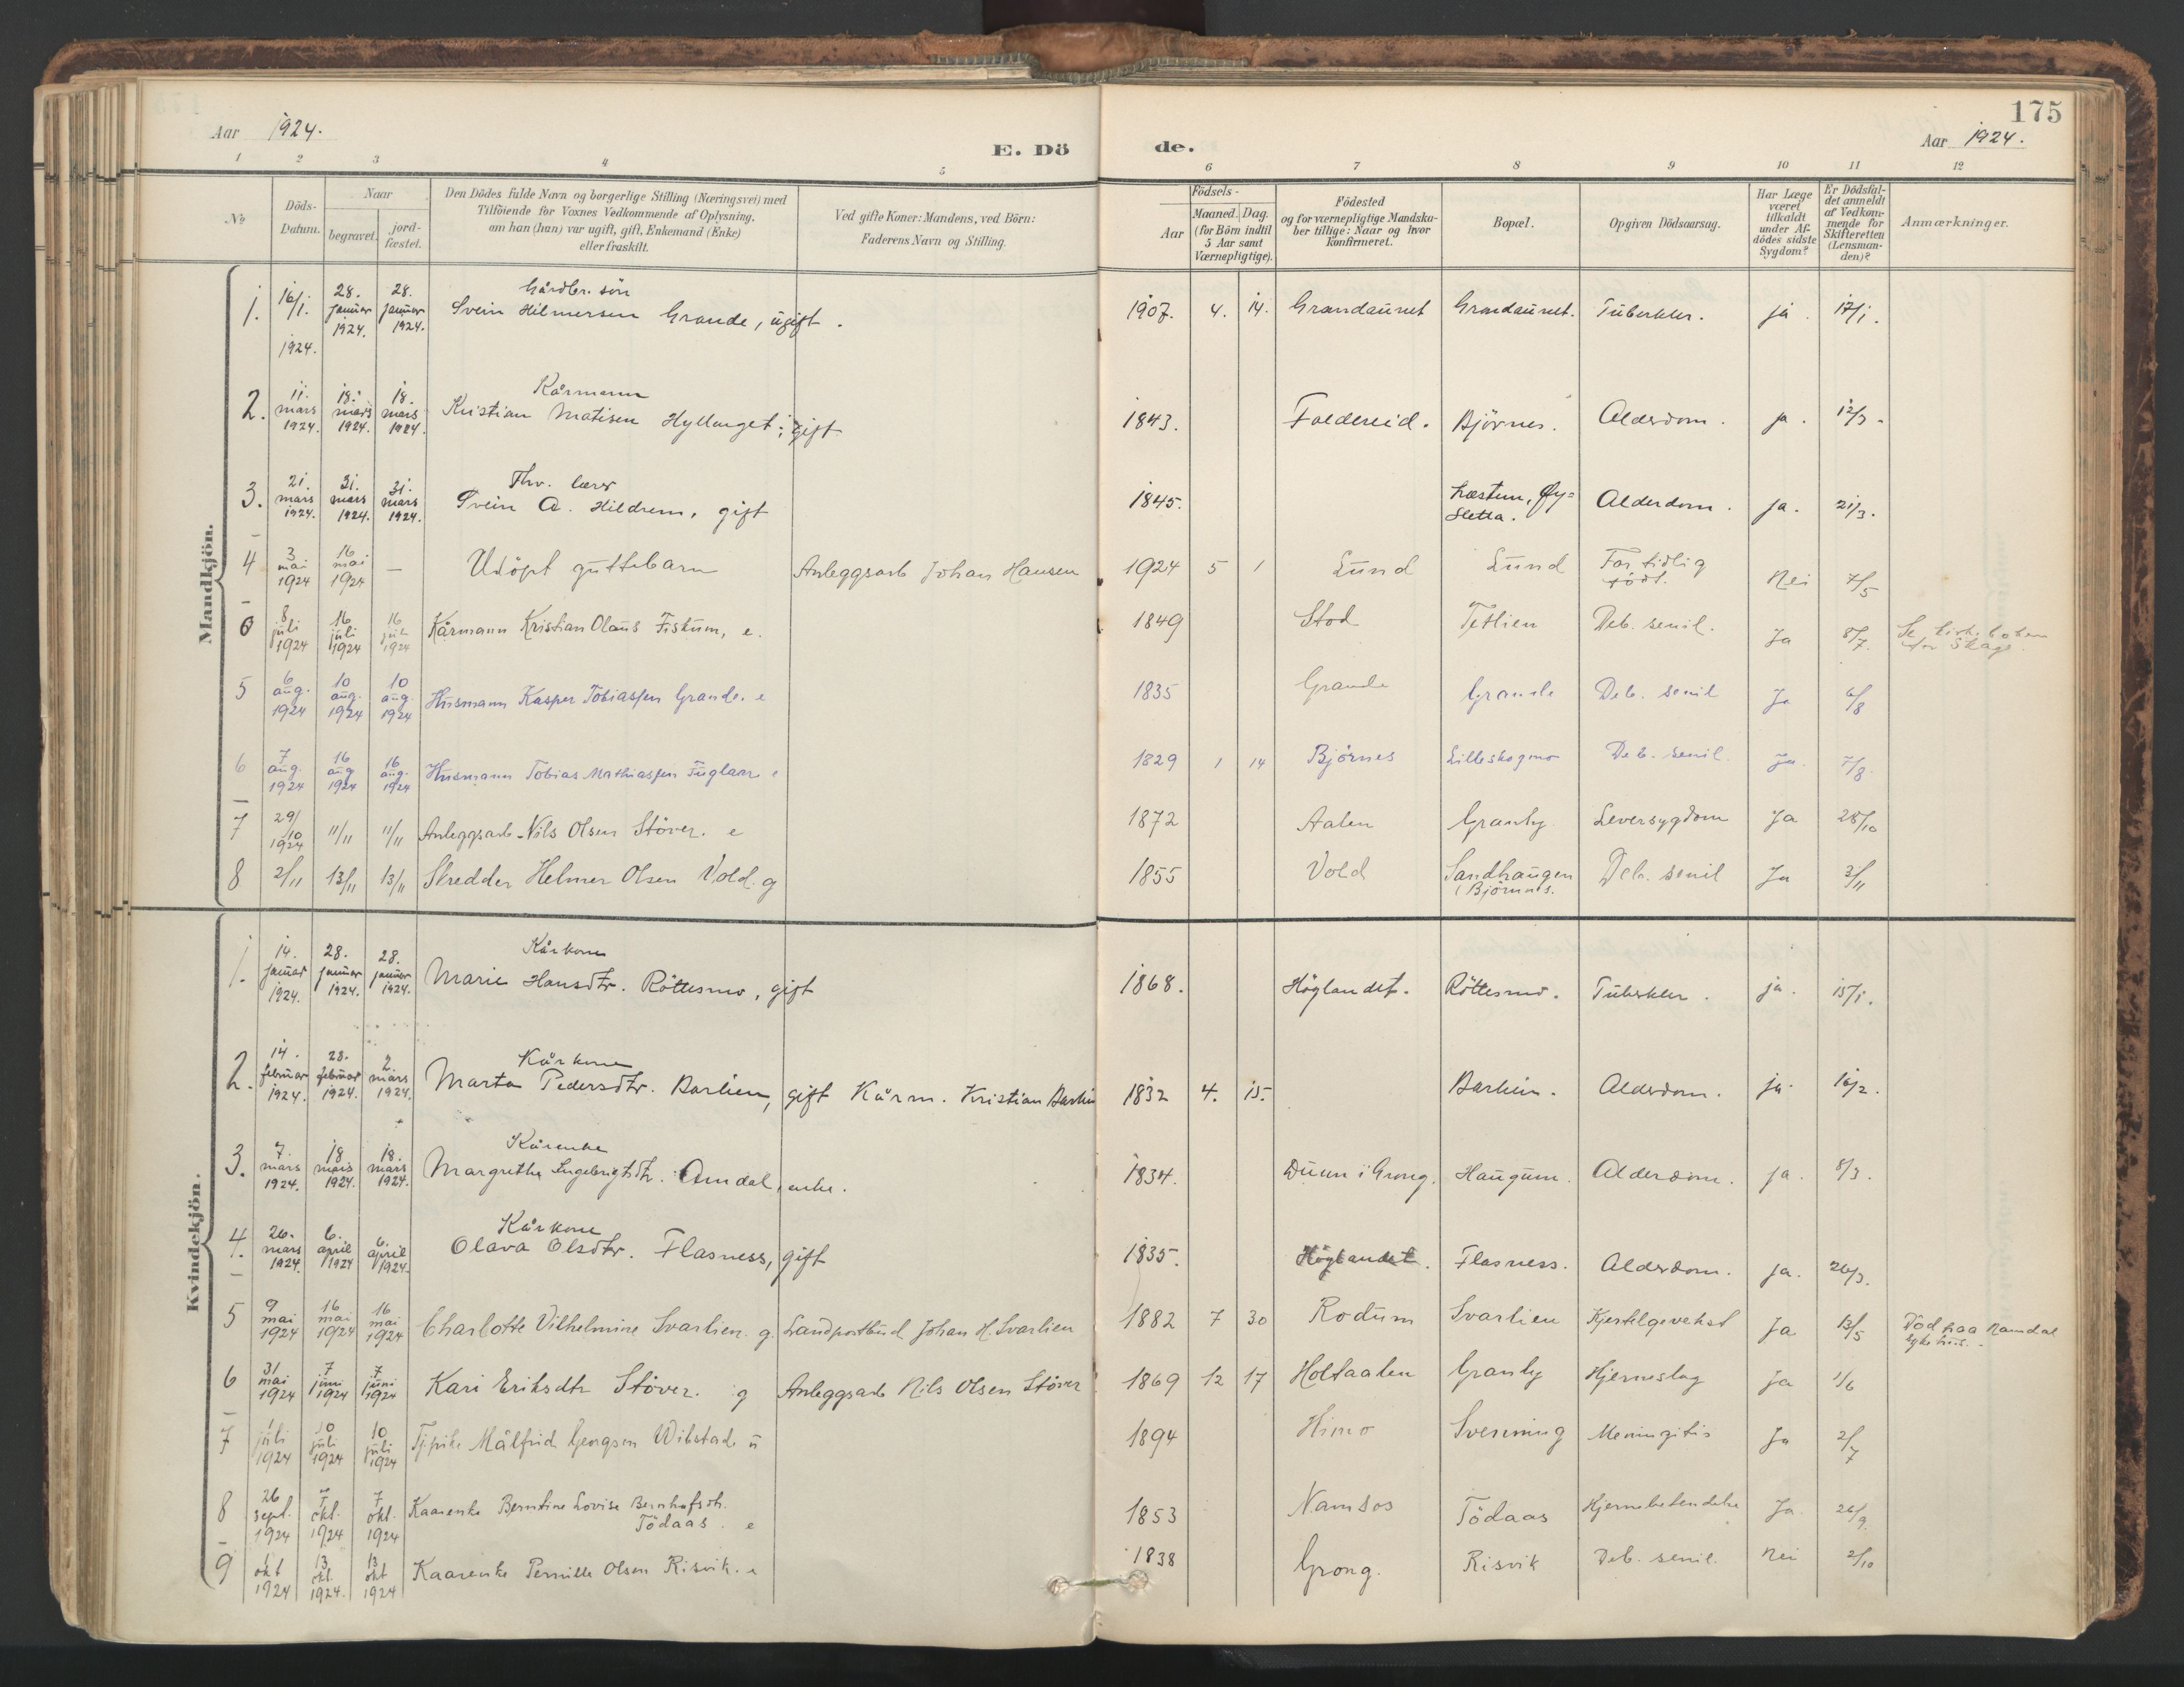 175
Aar 1924.
E. Döde.
Aar 1924.
1 2 3 4 5 6 7 8 9 10 11 12
No
Döds-Datum.
Naar
begravet.
jord-fæstet.
Den Dödes fulde Navn og borgerlige Stilling (Næringsvei) med
Tilföiende for Voxnes Vedkommende af Oplysning,
om han (hun) var ugift, gift, Enkemand (Enke)
eller fraskilt.
Ved gifte Koner: Mandens, ved Börn:
Faderens Navn og Stilling.
Födsels-
Aar
Maaned. Dag.
(for Börn indtil
5 Aar samt
Værnepligtige).
Födested
og for værnepligtige Mandsku-
ber tillige: Naar og hvor
Konfirmeret.
Bopæl.
Opgiven Dödsaarsag.
Har Læge
været
tilkaldt
under Af-
dödes sidste
Sygdom?
Er Dödsfal-
det anmeldt
af Vedkom-
mende for
Skifteretten
(Lensman-
den)?
Anmærkninger.
Mandkjön.
1. 16/1. 1924. 28. januar 1924. 28. januar 1924. Gårdbr. sön
Svein Hilmersen Grande, ugift. 1907. 4. 14. Grandaunet Grandaunet. Tuberkler. ja. 17/1.
2. 11. mars 1924. 18. mars 1924. 18. mars 1924. Kårmann
Kristian Matisen Hyllanget; gift 1843. Foldereid. Björnes. Alderdom. ja. 12/3.
3. 21. mars 1924. 31. mars 1924. 31. mars 1924. Fhv. lærer
Svein A. Hildrem, gift 1845. Læstum, Øy=
sletta. Alderdom. ja. 21/3.
4 3 mai 1924 16 mai 1924 — Udöpt guttebarn Anleggsarb Johan Hansen 1924 5 1 Lund Lund For tidlig
födt. Nei 7/5
0 8 juli 1924 16 juli 1924 16 juli 1924 Kårmann Kristian Olaus Fiskum, e. 1849 Stod Tetlien Deb. senil. Ja 8/7. Se kirkeboken
for Skage.
5 6 aug. 1924 10 aug. 1924 10 aug. 1924 Husmann Kasper Tobiassen Grande. e 1835 Grande Grande Deb. senil Ja 6/8
6 7 aug. 1924 16 aug 1924 16 aug. 1924 Husmann Tobias Mathiassen Fuglaar e 1829 1 14 Björnes Lilleskogmo Deb. senil Ja. 7/8.
7 29/10 1924 11/11 11/11 Anleggsarb. Nils Olsen Stöver. e 1872 Aalen Granby Leversygdom Ja 28/10
8 2/11 13/11 13/11 Skredder Helmer Olsen Vold. g 1855 Vold Sandhaugen
(Björnes. Deb. senil Ja 3/11
Kvindekjön.
1. 14. januar 1924. 28. januar 1924. 28. januar 1924. Kårkone
Marie Hansdtr. Röttesmo, gift 1868. Höglandet. Röttesmo. Tuberkler. ja. 15/1.
2. 14. februar 1924. 28. februar 1924. 2 mars 1924. Kårkone
Marta Pedersdtr. Barlien, gift Kårm. Kristian Barlien 1832 4. 15. Barlien. Alderdom. ja. 16/2.
3. 7. mars 1924. 18 mars 1924. 18. mars 1924. Kårenke
Margrethe Ingebrigtsdtr. Amdal, enke. 1834. Duun i Grong. Haugum. Alderdom. ja. 8/3.
4. 26. mars 1924. 6. april 1924 6. april 1924. Kårkone
Olava Olsdtr. Flasness, gift 1835. Höglandet. Flasness. Alderdom. ja. 26/3.
5 9 mai 1924 16 mai 1924 16 mai 1924 Charlotte Vilhelmine Svarlien. g. Landpostbud Johan H. Svarlien 1882 7 30 Rodum Svarlien Kjertelgevekst Ja 13/5 Död paa Namdal
sykehus.
6 31 mai 1924 7 juni 1924 7 juni 1924 Kari Eriksdtr Stöver. g Anleggsarb Nils Olsen Stöver 1869 12 17 Holtaalen Granby Hjerneslag Ja 1/6
7 1 juli 1924 10 juli 1924 10 juli 1924 Tj.pike Målfrid Georgsen Vibstad u 1894 Himo Svenning Meningitis Ja 2/7
8 26 sept. 1924 7 okt. 1924 7 okt. 1924 Kaarenke Berntine Lovise Bernhofsdtr.
Tödaas. e 1853 Namsos Tödaas Hjernebetendelse Ja 26/9.
9 1 okt 1924 13 okt. 1924. 13 okt 1924 Kaarenke Pernille Olsen Risvik. e 1838 Grong. Risvik Deb. senil. Nei 2/10